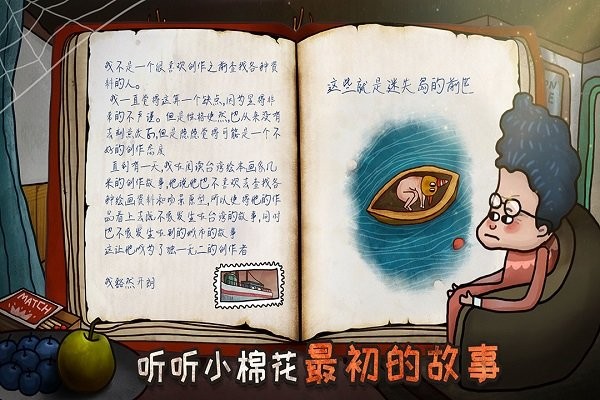 我不是一个很喜欢创作之前查找各种资
料的人。
我一直觉得这算一个缺点,因为显得非
常的不严谨。但是性格使然,也从来没有
去刻意改,但是隐隐觉得可能是一个不
好的创作态度
直到有一天,我在阅读台湾绘本画家几
米的创作故事,他说他也不喜欢去查找各
种绘画资料和场景原型,所以使得他的作
品看上去既不像发生在台湾的故事,同时
也不像发生在别的城市的故事
这让他成为了独一无二的创作者
我豁然开朗
这些就是迷失岛的前因
MATCH
听听小棉花最初的故事